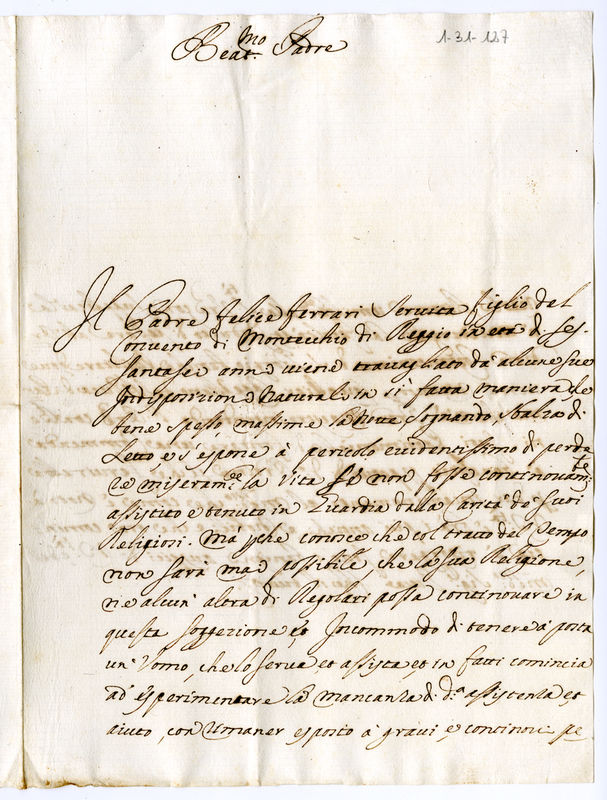 Beat.mo Padre
1-31-127
Il Padre Felice Ferrari Servita figlio del
Convento di Montecchio di Reggio in età di ses-
santasei anni viene travagliato da alcune sue
Indisposizioni Naturali in si fatta maniera, che
bene speso, massime la Notte Sognando, sbalza di
Letto, e s'espone à pericolo evidentissimo di perde-
re miseram.te la vita se non fosse continouam.te
assistito, e tenuto in Guardia dalla Carità de suoi
Religiosi. Mà perche conosce che col tratto del Tempo
non sarà mai possibile, che la sua Religione,
ne alcun' altra di Regolari possa continouare in
questa soggezione et Incommodo di tenere a posta
un' Uomo, che lo serva et assista, et in fatti comincia
ad esperimentare la mancanza di d.a assistenza et
aiuto, con rimaner esposto a gravi e continoui pe